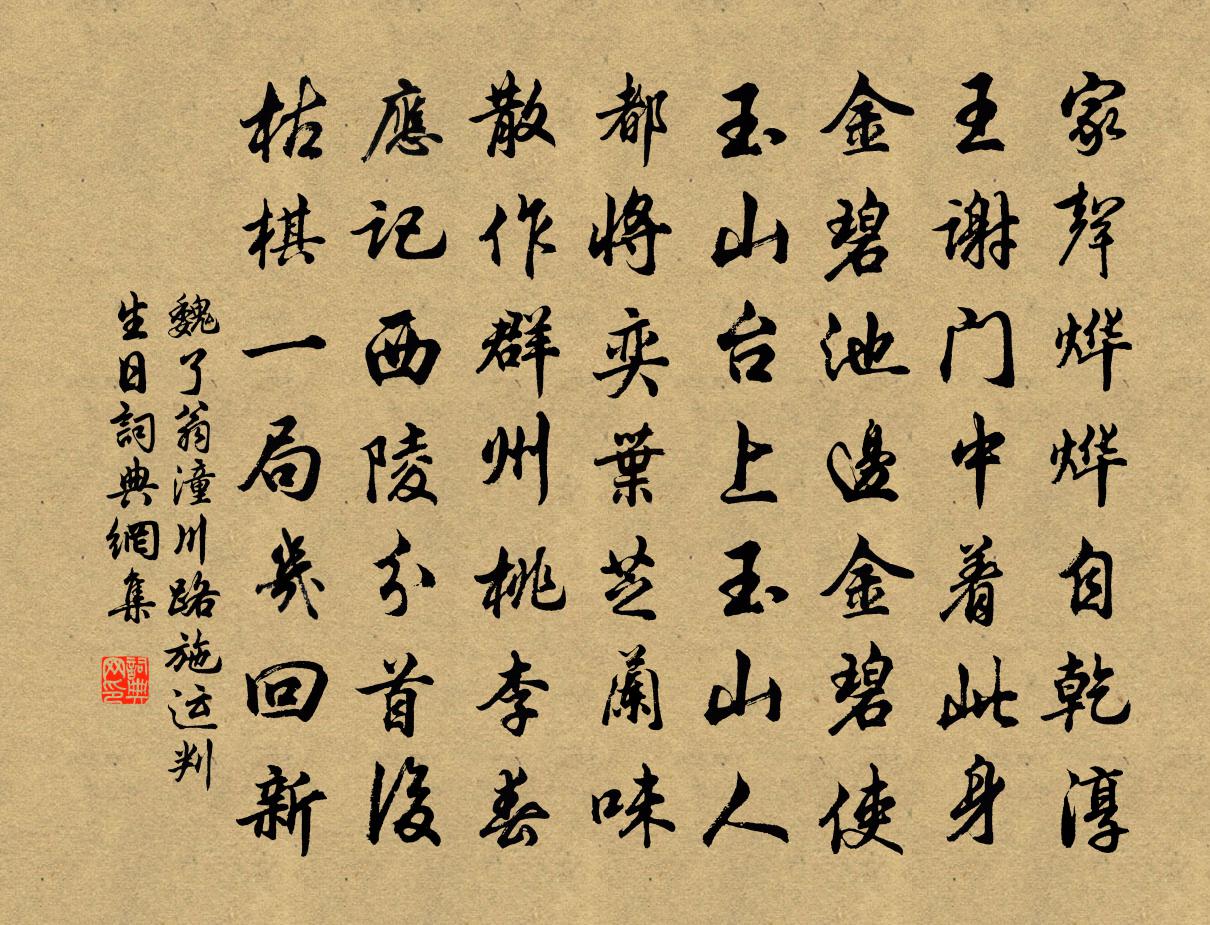 家聲烨烨自乾淳
王谢门中着此身
金碧池邊金碧使
玉山台上玉山人
都將奕葉芝蘭味
散作群州桃李春
應记西陵分首後
枯棋一局幾回新
魏了翁潼川路施运判
生日詞典網集
詞典网印